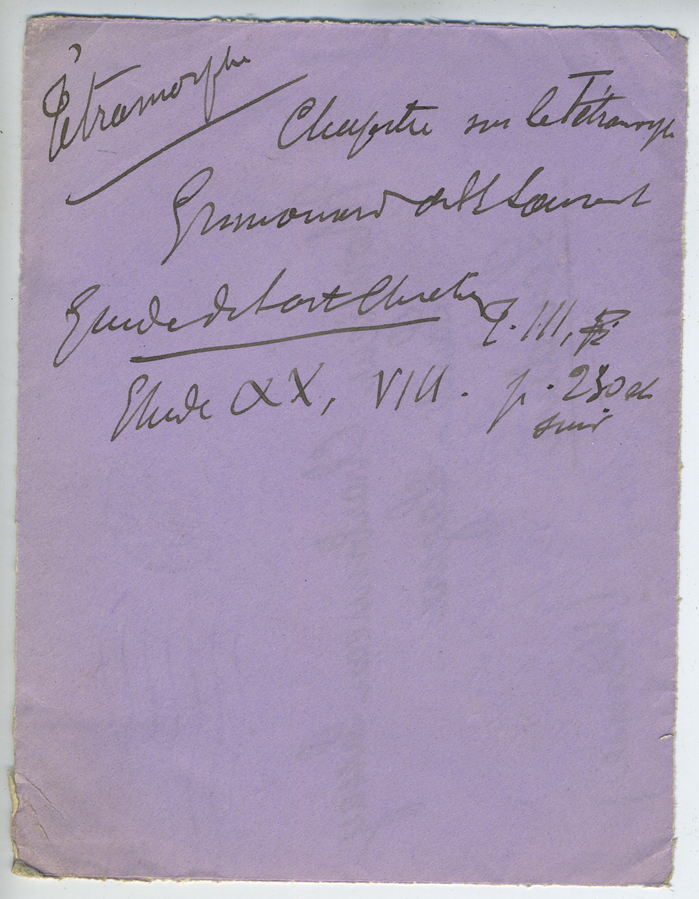 Tétramorphe
Chapitre sur le Tétramorph
Grimouard de St Laurent
Guide de l'art Chrétien T. III,
Etude XX, VIII. p. 230 et
suiv